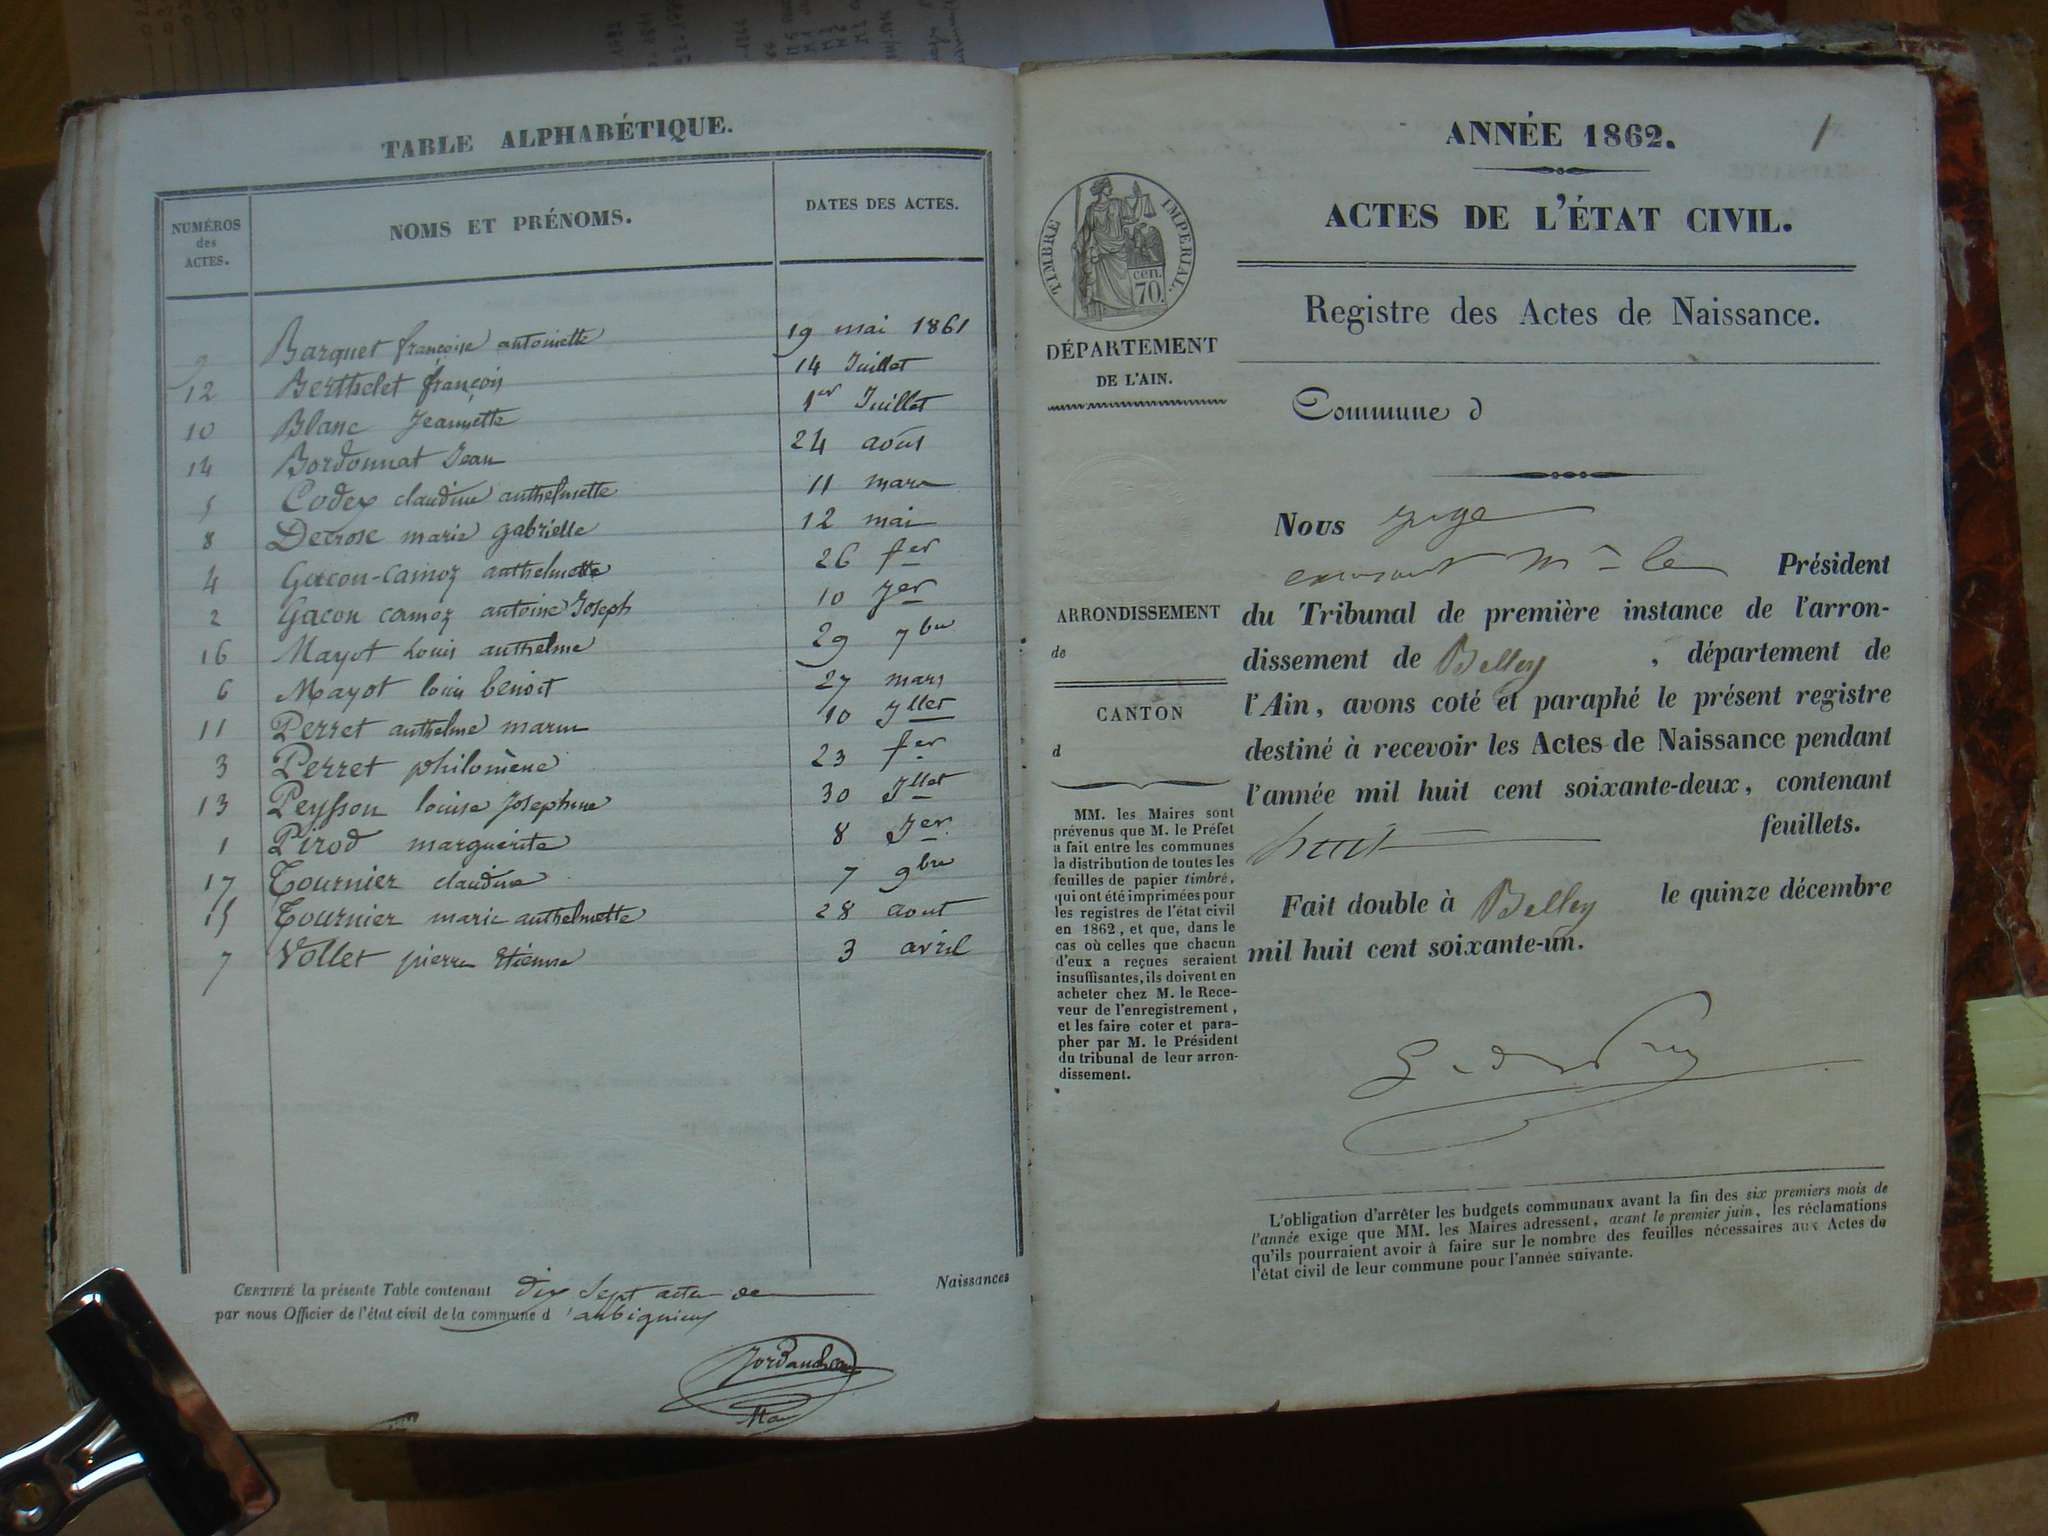 TABLE ALPHABÉTIQUE.
NUMÉROS des ACTES. NOMS ET PRÉNOMS. DATES DES ACTES.
9 Barquet françoise antoinette 19 mai 1861
12 Berthelet françois 14 Juillet
10 Blanc Jeannette 1er Juillet
14 Bordonnat Jean 24 août
5 Codex claudine anthelmette 11 mars
8 Decrose marie gabrielle 12 mai
4 Gacon-Camoz anthelmette 26 fer
2 Gacon camoz antoine Joseph 10 Jer
16 Mayot Louis anthelme 29 7bre
6 Mayot louis benoit 27 mars
11 Perret anthelme marin 10 Jllet
3 Perret philomène 23 fer
13 Peysson louise Josephine 30 Jllet
1 Pirod marguerite 8 Jer
17 Tournier claudine 7 9bre
15 Tournier marie anthelmette 28 aout
7 Vollet pierre Etienne 3 avril
CERTIFIÉ la présente Table contenant dix Sept actes de Naissances
par nous Officier de l'état civil de la commune d'aubignieu
ANNÉE 1862.
1
ACTES DE L'ÉTAT CIVIL.
TIMBRE IMPERIAL.
cen.
70.
Registre des Actes de Naissance.
DÉPARTEMENT
DE L'AIN.
Commune d
ARRONDISSEMENT
de
CANTON
d
MM. les Maires sont
prévenus que M. le Préfet
a fait entre les communes
la distribution de toutes les
feuilles de papier timbré,
qui ont été imprimées pour
les registres de l'état civil
en 1862, et que, dans le
cas où celles que chacun
d'eux a reçues seraient
insuffisantes, ils doivent en
acheter chez M. le Rece-
veur de l'enregistrement,
et les faire coter et para-
pher par M. le Président
du tribunal de leur arron-
dissement.
Nous juge
Mr le Président
du Tribunal de première instance de l'arron-
dissement de Belley, département de
l'Ain, avons coté et paraphé le présent registre
destiné à recevoir les Actes de Naissance pendant
l'année mil huit cent soixante-deux, contenant
huit feuillets.
Fait double à Belley le quinze décembre
mil huit cent soixante-un.
L'obligation d'arrêter les budgets communaux avant la fin des six premiers mois de
l'année exige que MM. les Maires adressent, avant le premier juin, les réclamations
qu'ils pourraient avoir à faire sur le nombre des feuilles nécessaires aux Actes de
l'état civil de leur commune pour l'année suivante.